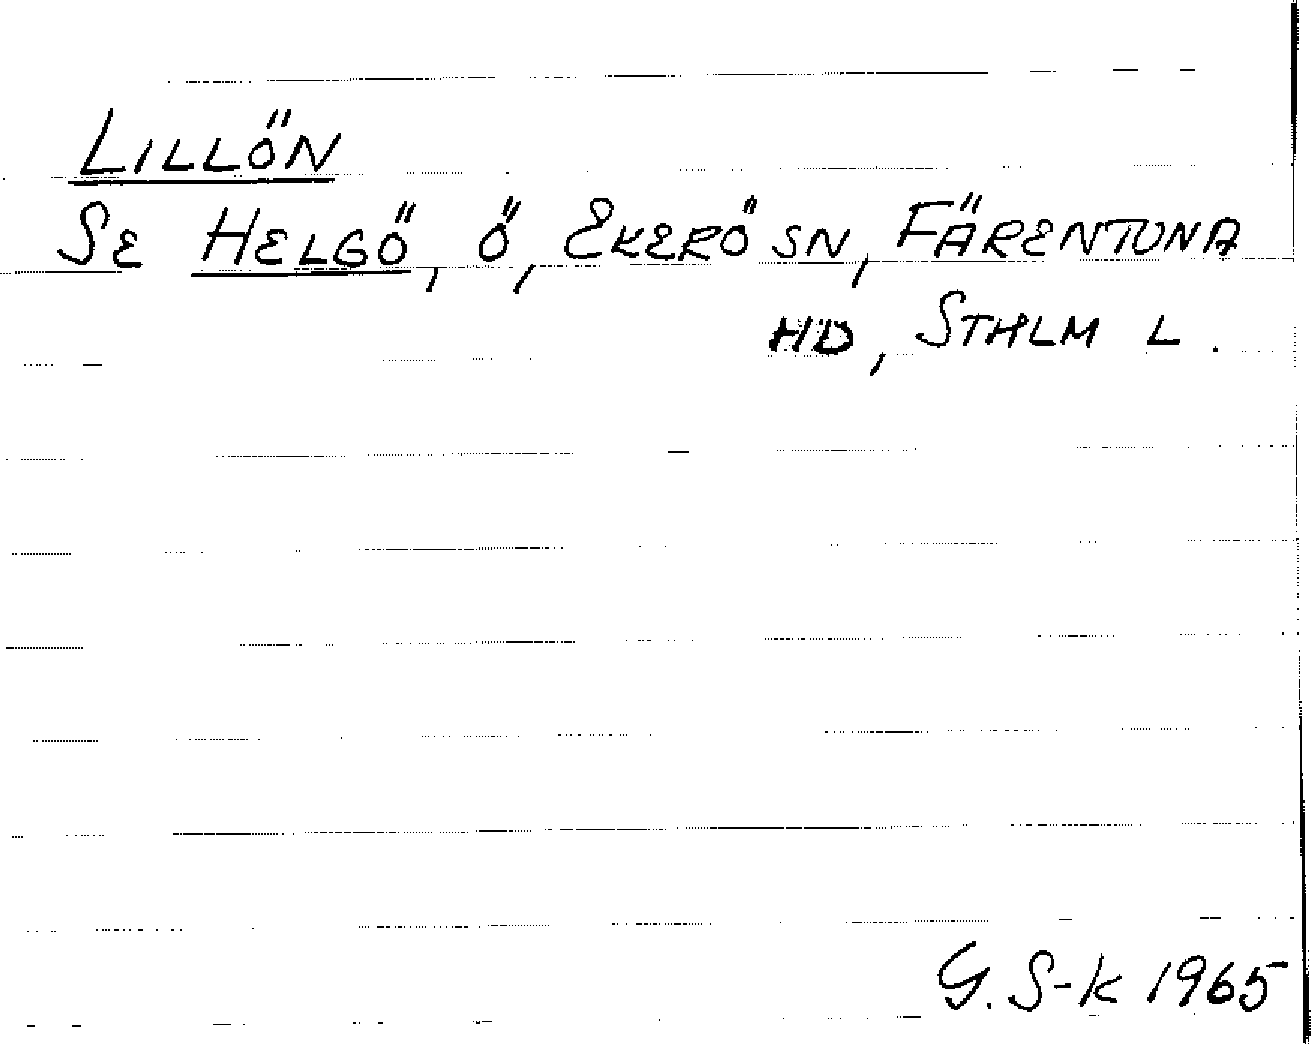 LILLÖN
SE HELGÖ, Ö, EKERÖ SN, FÄRENTUNA
HD, STHLM L.
G. S-K 1965